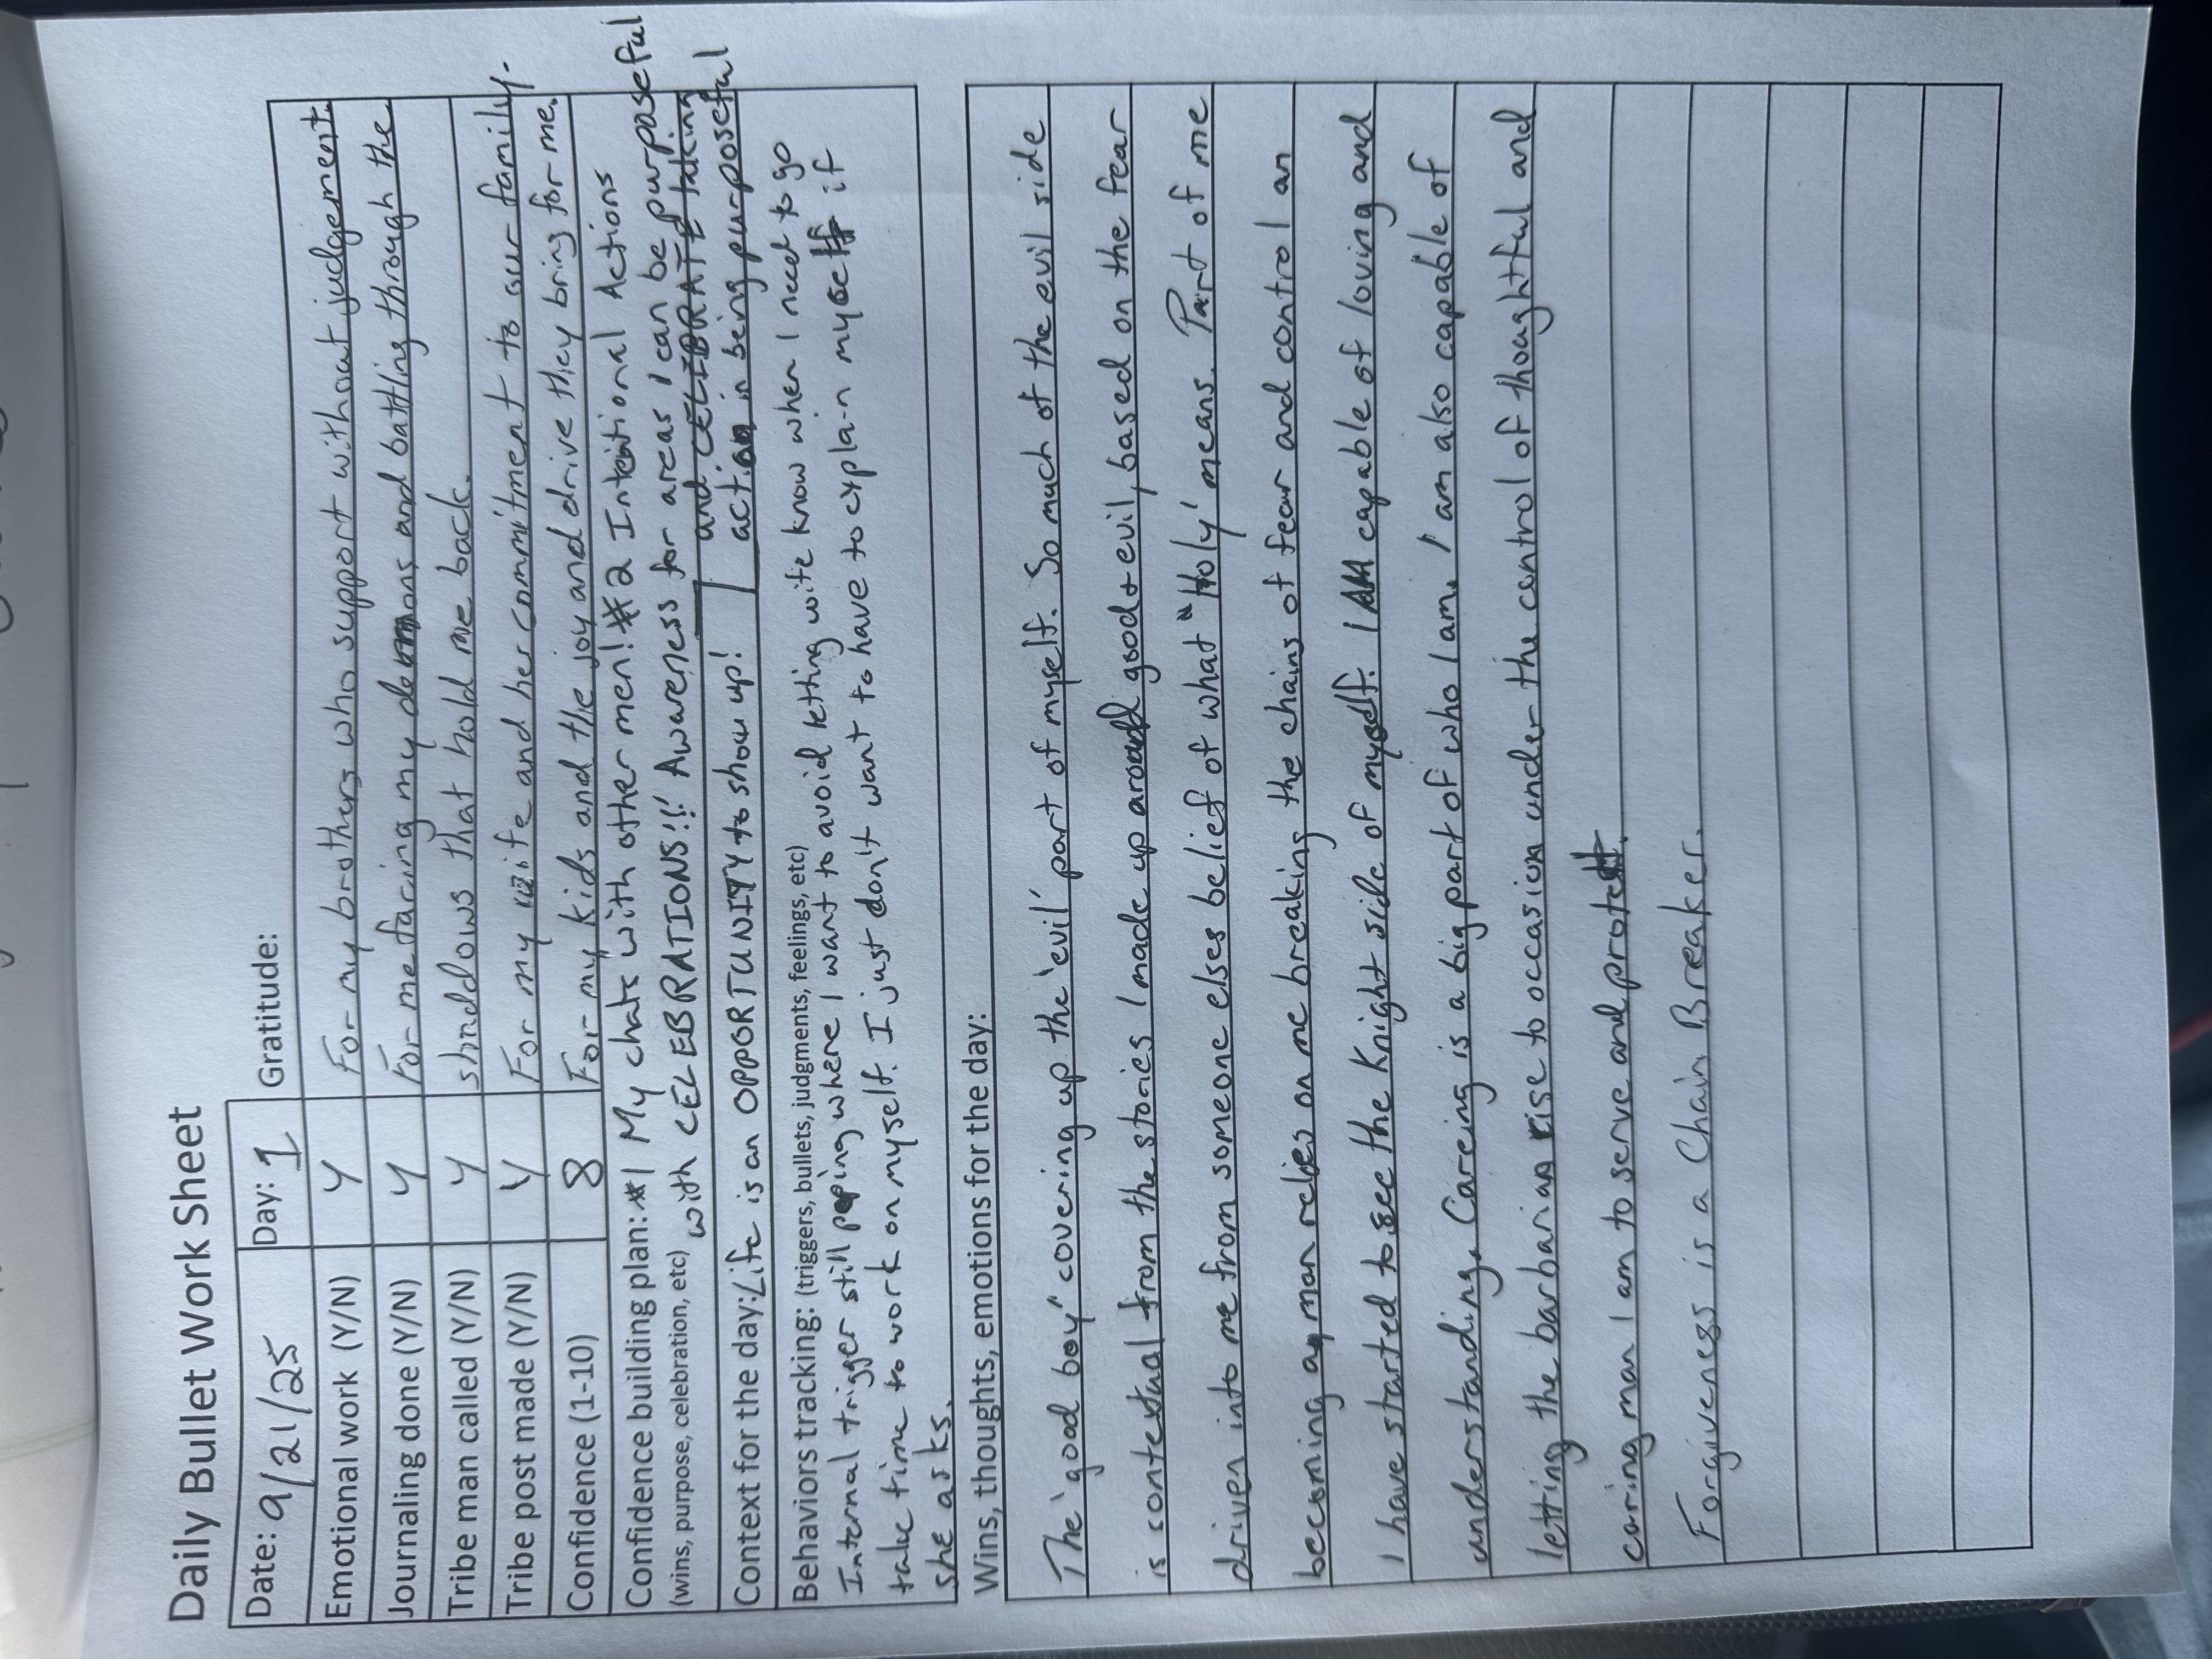 Daily Bullet Work Sheet
Date: 9/21/25 Day: 1 Gratitude:
Emotional work (Y/N) Y For my brothers who support without judgement.
Journaling done (Y/N) Y For me facing my demons and battling through the
Tribe man called (Y/N) Y shaddows that hold me back.
Tribe post made (Y/N) Y For my wife and her commitment to our family.
Confidence (1-10) 8 For my kids and the joy and drive they bring for me.
Confidence building plan: #1 My chats with other men! #2 Intentional Actions
(wins, purpose, celebration, etc) with CELEBRATIONS!!! Awareness for areas I can be purposeful
and CELEBRATE taking
Context for the day: Life is an OPPORTUNITY to show up! action in being purposeful
Behaviors tracking: (triggers, bullets, judgments, feelings, etc)
Internal trigger still poping where I want to avoid letting wife know when I need to go
take time to work on myself. I just don't want to have to explain myself if
she asks.
Wins, thoughts, emotions for the day:
The 'good boy' covering up the 'evil' part of myself. So much of the evil side
is contextual from the stories I made up around good + evil, based on the fear
driven into me from someone elses belief of what "Holy' means. Part of me
becoming a man relies on me breaking the chains of fear and control an
I have started to see the Knight side of myself. I AM capable of loving and
understanding. Careing is a big part of who I am. I am also capable of
letting the barbarian rise to occasion under the control of thoughtful and
caring man I am to serve and protect.
Forgiveness is a Chain Breaker.